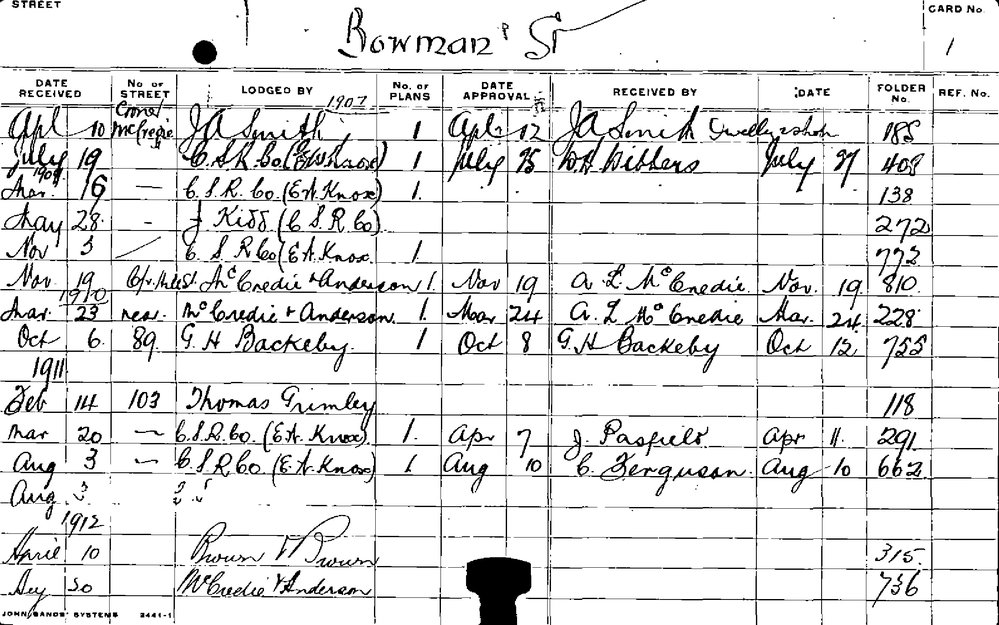 STREET
Bowman St
CARD No.
1
DATE RECEIVED No. OF STREET LODGED BY No. OF PLANS DATE APPROVAL RECEIVED BY DATE FOLDER No. REF. No.
1907
Apl 10 McCredie J A Smith 1 Apl 12 J A Smith 188
July 19 C.S.R. Co (E W Knox) 1 July 25 July 408
1909
Mar 16 — C.S.R. Co. (E.A. Knox) 1. 138
May 28 - J Kidd (C S R Co) 272
Nov 3 C S R Co (E A. Knox 1. 772
Nov 19 Mc Credie & Anderson 1. Nov 19 A. L. Mc Credie Nov. 19 810
1910
Mar. 23 near. Mc Credie & Anderson. 1. Mar 24 A. L. Mc Credie Mar. 24. 228
Oct 6 89 G. H Backeby. 1 Oct 8 G. H Backeby Oct 12 755
1911
Feb 14 103 Thomas Grimley 118
Mar 20 — C.S.R. Co. (E A. Knox) 1. Apr 7 J. Pasfield Apr 11. 291
Aug 3 — C. S R Co (E. A. Knox) 1. Aug 10 C. Ferguson. Aug 10 662
Aug 3
1912
April 10 Brown & Brown 315
20 McCredie & Anderson 736
JOHN SANDS' SYSTEMS 2441-1